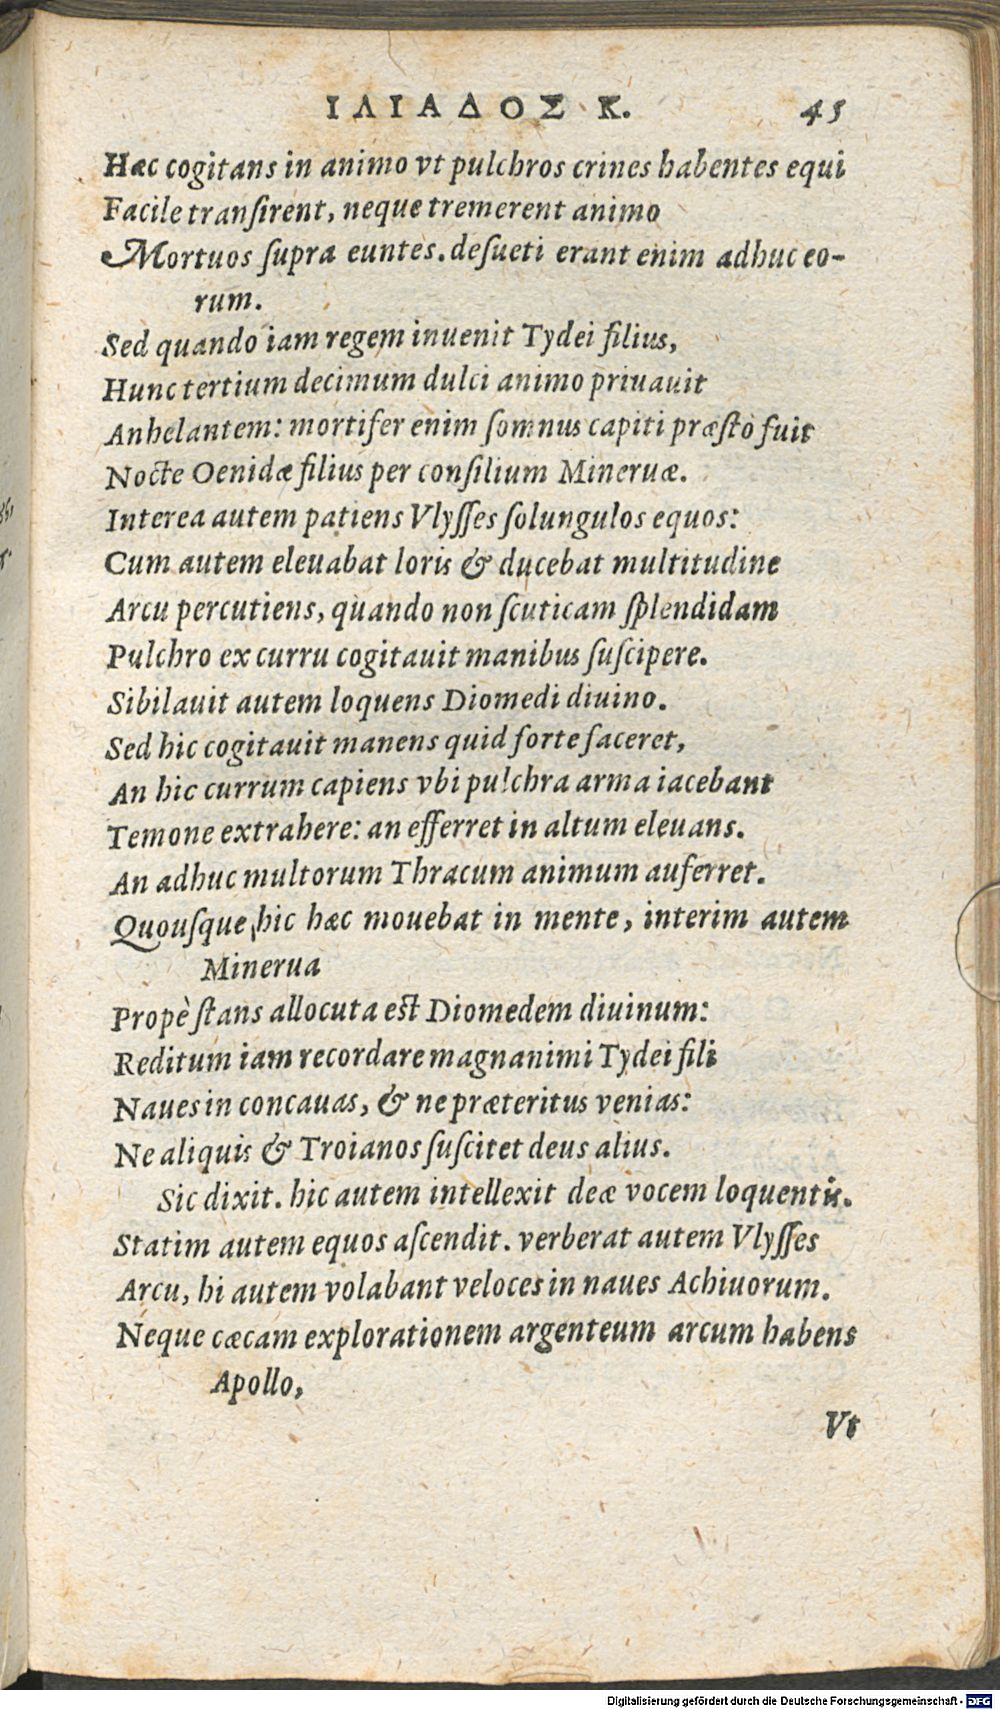 ΙΛΙΑΔΟΣ Κ. 45
Hæc cogitans in animo vt pulchros crines habentes equi
Facile transirent, neque tremerent animo
Mortuos supra euntes. desueti erant enim adhuc eo-
rum.
Sed quando iam regem inuenit Tydei filius,
Hunc tertium decimum dulci animo priuauit
Anhelantem: mortifer enim somnus capiti præstò fuit
Nocte Oenidæ filius per consilium Mineruæ.
Interea autem patiens Vlysses solungulos equos:
Cum autem eleuabat loris & ducebat multitudine
Arcu percutiens, quando non scuticam splendidam
Pulchro ex curru cogitauit manibus suscipere.
Sibilauit autem loquens Diomedi diuino.
Sed hic cogitauit manens quid forte faceret,
An hic currum capiens vbi pulchra arma iacebant
Temone extrahere: an efferret in altum eleuans.
An adhuc multorum Thracum animum auferret.
Quousque hic hæc mouebat in mente, interim autem
Minerua
Propè stans allocuta est Diomedem diuinum:
Reditum iam recordare magnanimi Tydei fili
Naues in concauas, & ne præteritus venias:
Ne aliquis & Troianos suscitet deus alius.
Sic dixit. hic autem intellexit deæ vocem loquentis.
Statim autem equos ascendit. verberat autem Vlysses
Arcu, hi autem volabant veloces in naues Achiuorum.
Neque cæcam explorationem argenteum arcum habens
Apollo,
Vt
Digitalisierung gefördert durch die Deutsche Forschungsgemeinschaft - DFG